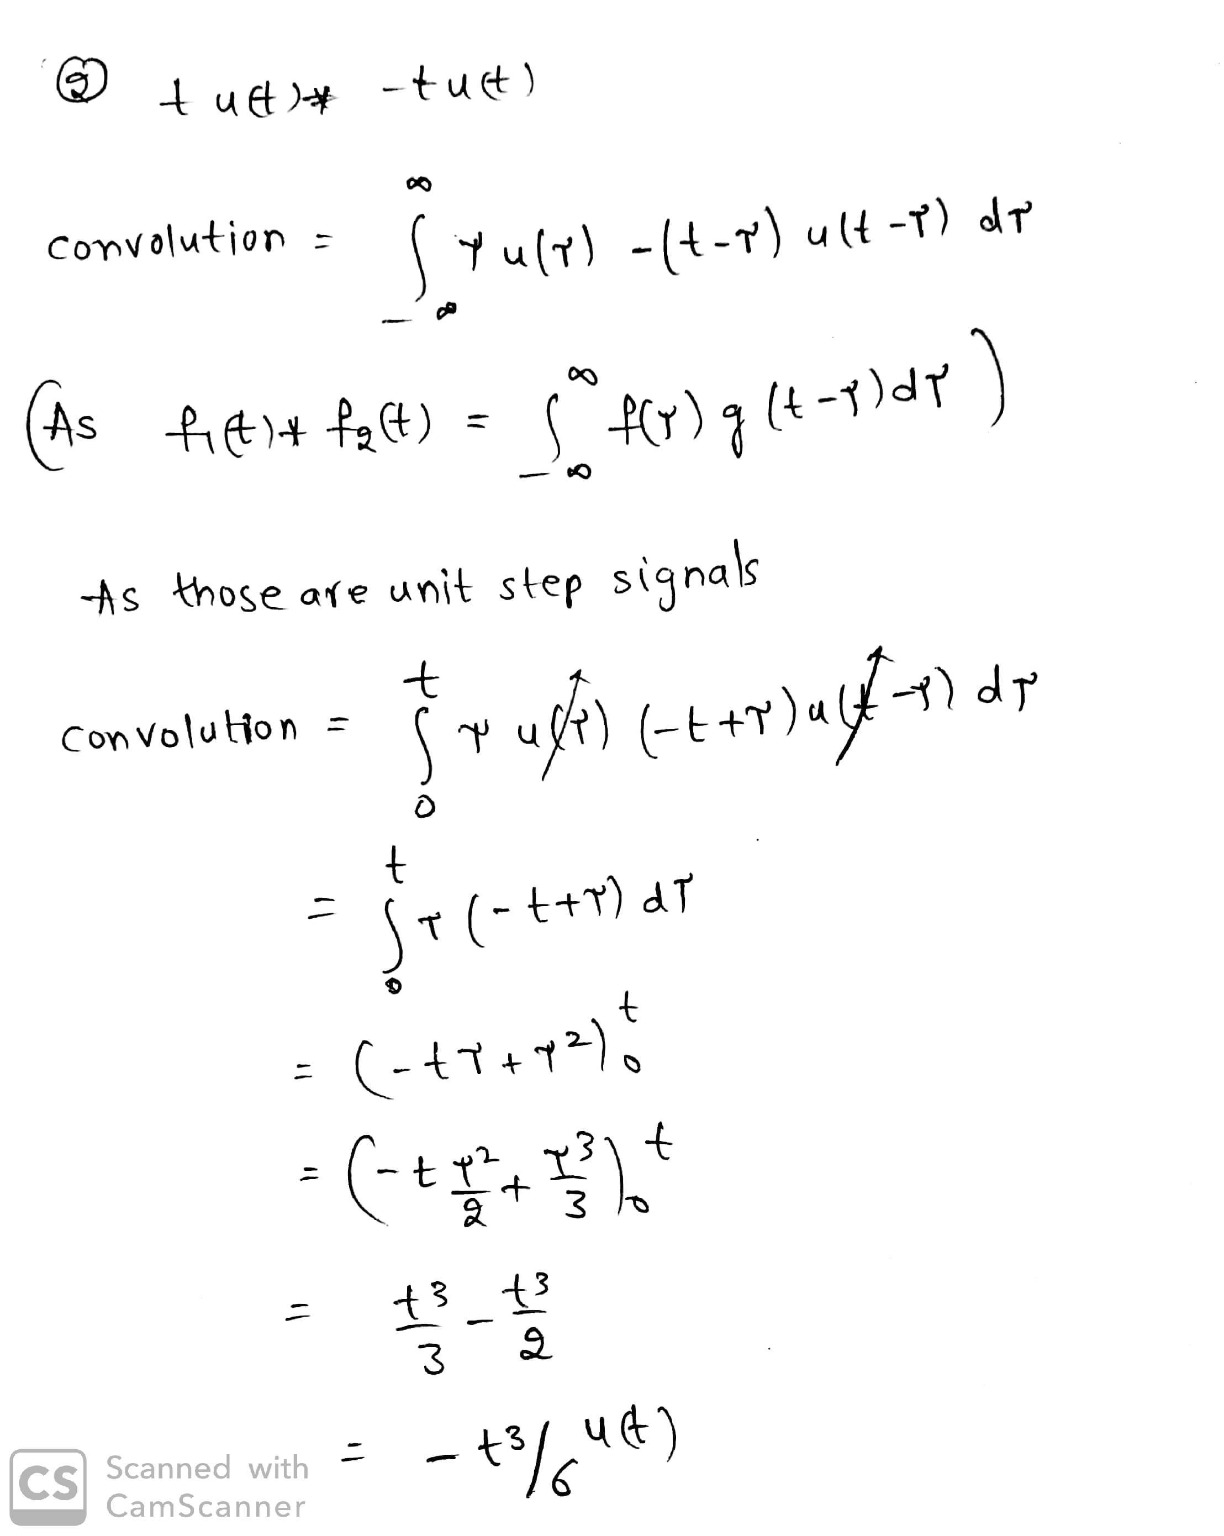 ② t u(t) * -t u(t)
convolution = ∫_{-∞}^{∞} τ u(τ) -(t-τ) u(t-τ) dτ
(As f₁(t) * f₂(t) = ∫_{-∞}^{∞} f(τ) g(t-τ)dτ)
As those are unit step signals
convolution = ∫_0^t τ u(τ) (-t+τ) u(t-τ) dτ
= ∫_0^t τ (-t+τ) dτ
= (-tτ+τ²)_0^t
= (-t τ²/2 + τ³/3)_0^t
= t³/3 - t³/2
= -t³/6 u(t)
CS Scanned with
CamScanner